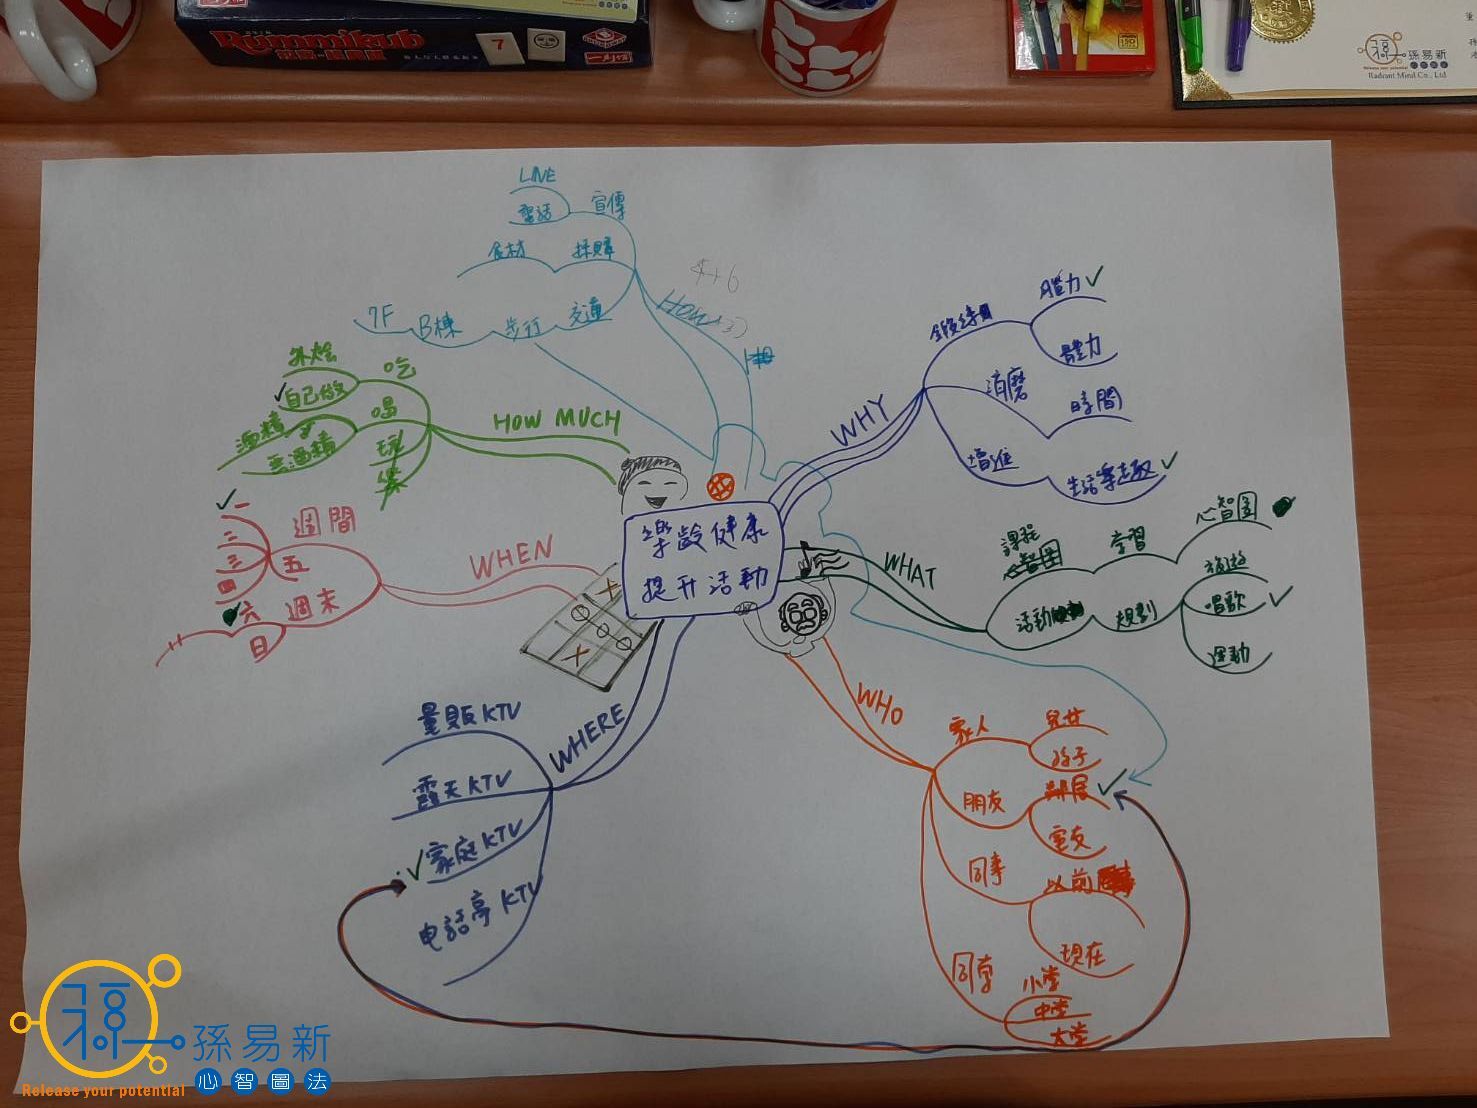 Rummikub
7
孫易新
Radiant Mind Co., Ltd
樂齡健康
提升活動
WHY
鍛鍊
腦力
體力
消磨
時間
增進
生活樂趣
WHAT
課程
學習
心智圖
活動
規劃
旅遊
唱歌
運動
WHO
家人
兒女
孫子
朋友
鄰居
室友
同事
以前
現在
同學
小學
中學
大學
WHERE
量販KTV
露天KTV
家庭KTV
电話亭KTV
WHEN
週間
一
二
三
四
五
週末
六
日
HOW MUCH
吃
外燴
自己做
喝
酒精
無酒精
玩
樂
HOW
宣傳
LINE
電話
採購
食材
交通
步行
B棟
7F
孫易新
心智圖法
Release your potential